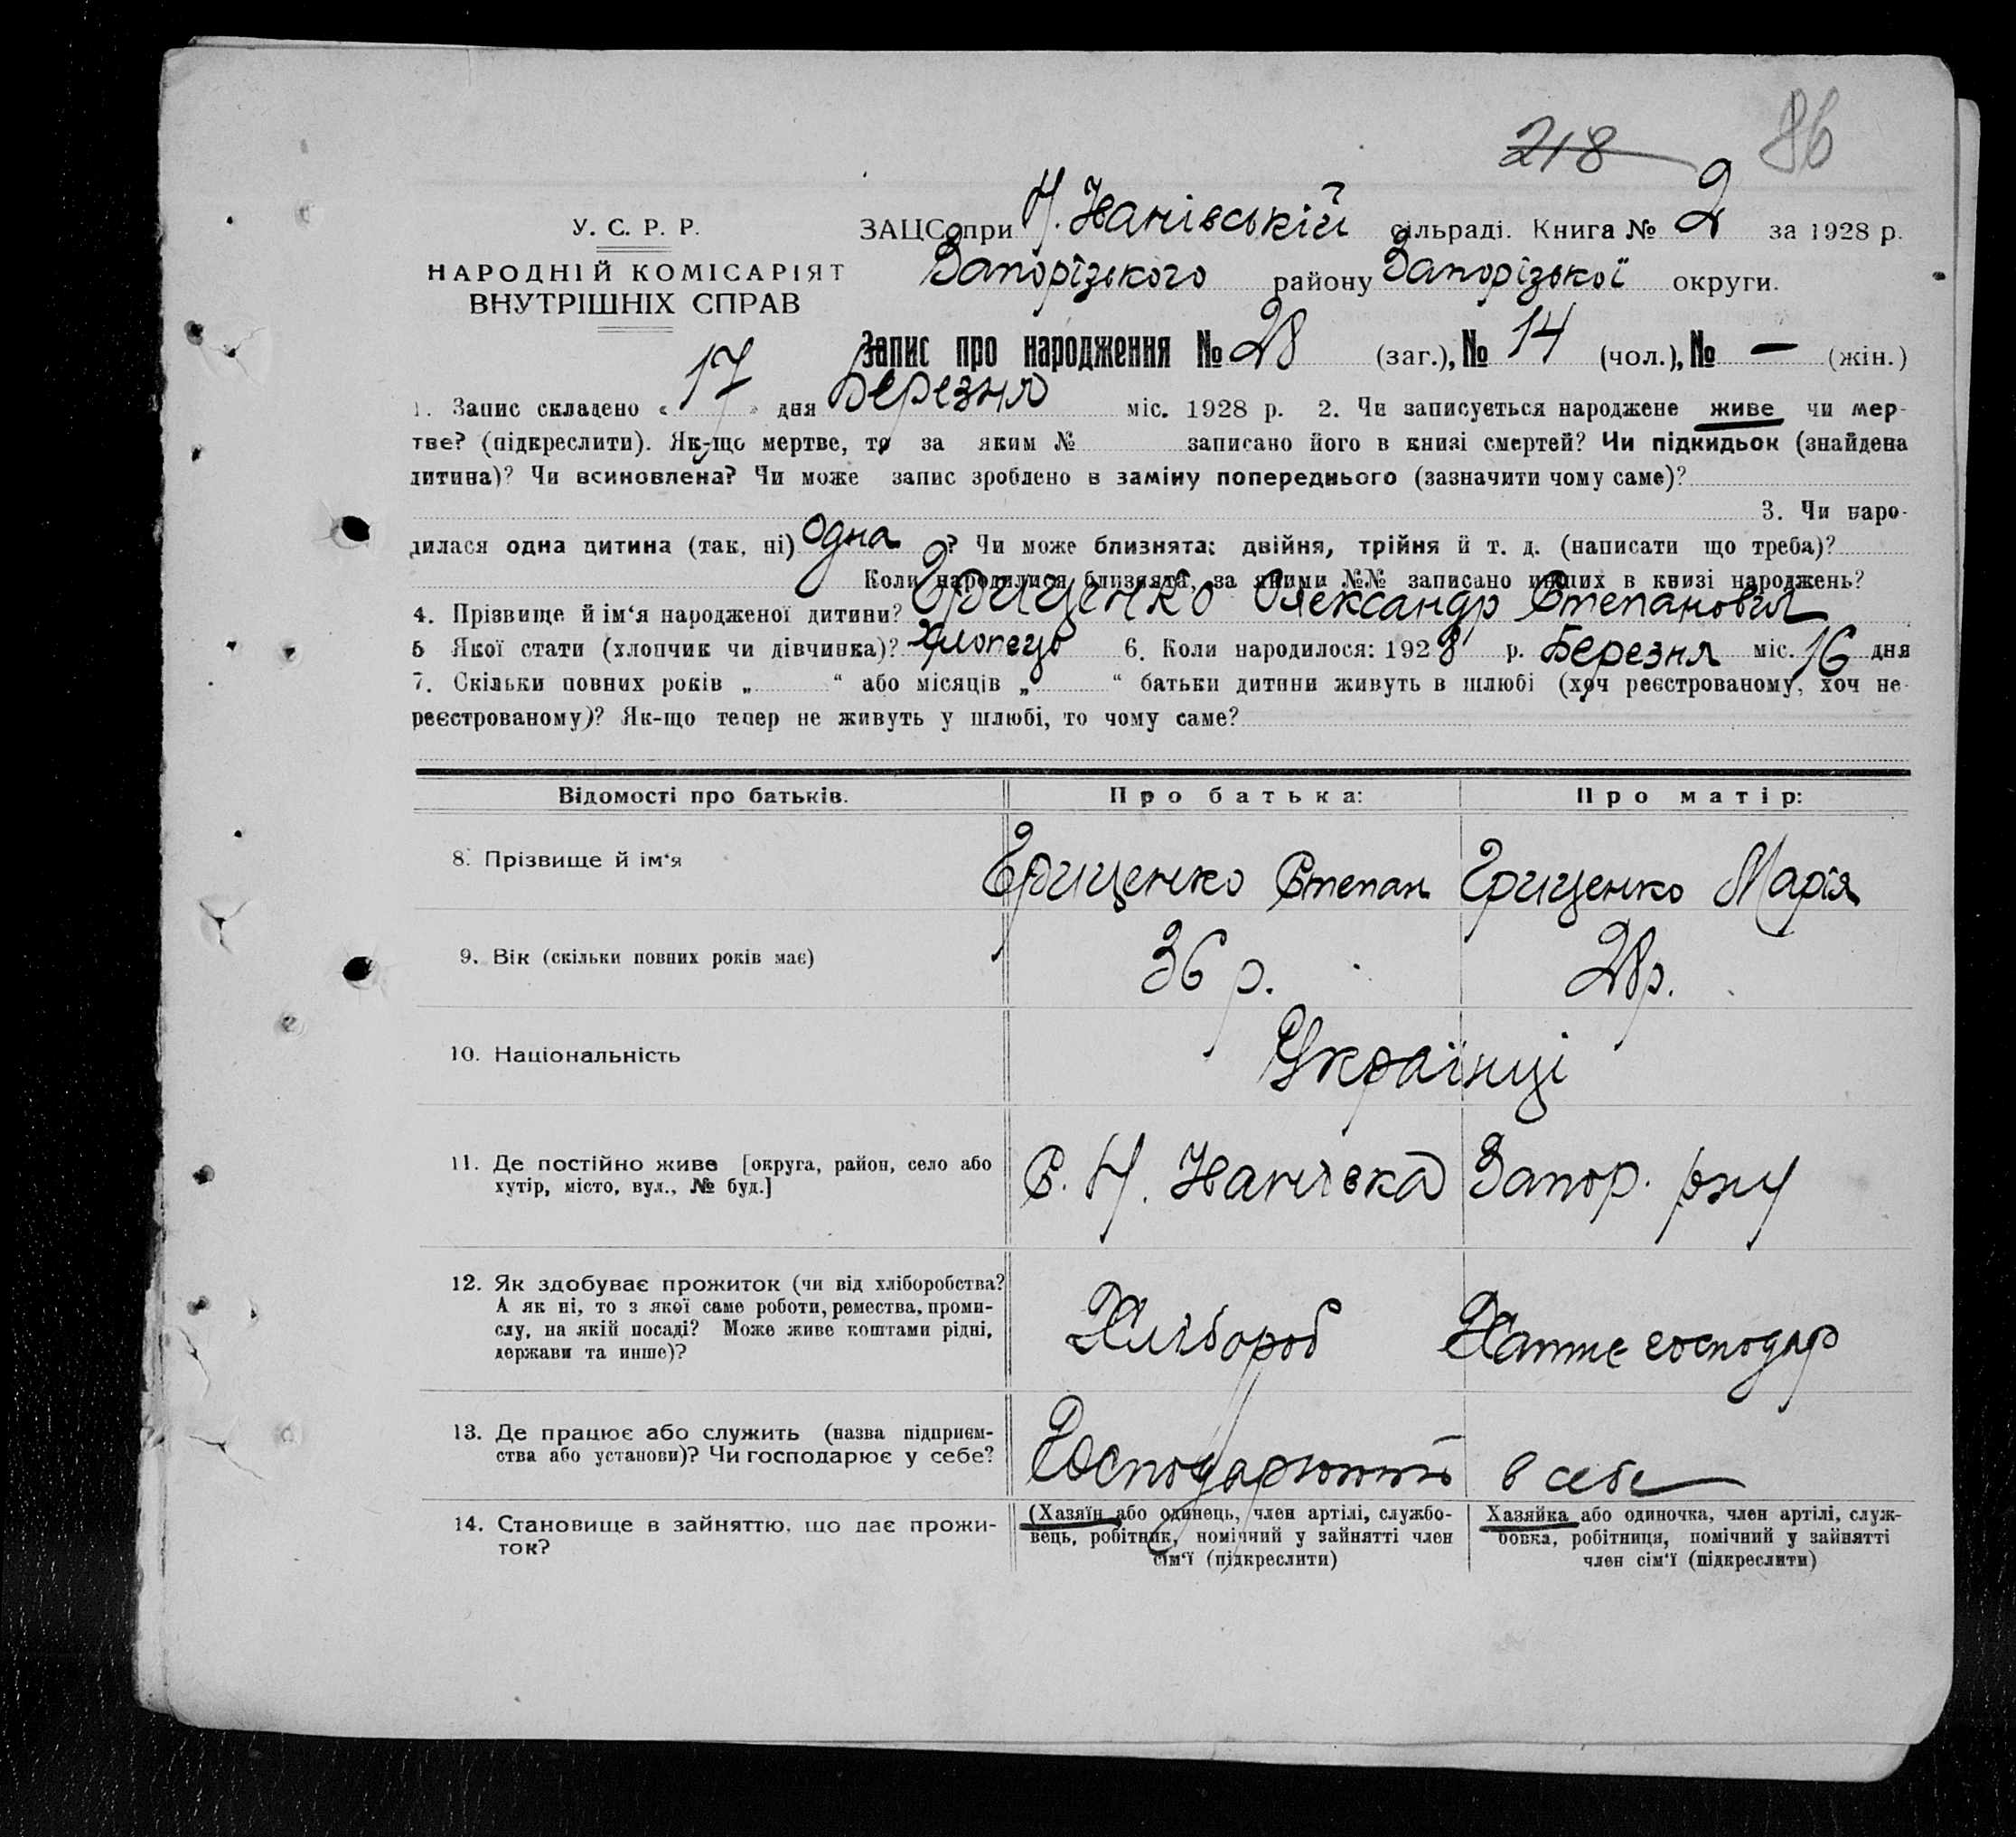 218 86
У. С. Р. Р.
ЗАЦС при Н. Іванівській сільраді. Книга № 2 за 1928 р.
НАРОДНІЙ КОМІСАРІЯТ
ВНУТРІШНІХ СПРАВ
Запорізького району Запорізької округи.
Запис про народження № 28 (заг.), № 14 (чол.), № — (жін.)
1. Запис складено « 17 » дня Березня міс. 1928 р. 2. Чи записується народжене живе чи мер-
тве? (підкреслити). Як-що мертве, то за яким № записано його в книзі смертей? Чи підкидьок (знайдена
дитина)? Чи всиновлена? Чи може запис зроблено в заміну попереднього (зазначити чому саме)?
3. Чи наро-
дилася одна дитина (так, ні) Одна ? Чи може близнята: двійня, трійня й т. д. (написати що треба)?
Коли народилися близнята, за якими №№ записано инших в книзі народжень?
4. Прізвище й ім'я народженої дитини? Грищенко Олександр Степанович
5 Якої стати (хлопчик чи дівчинка)? Хлопець 6. Коли народилося: 1928 р. Березня міс. 16 дня
7. Скільки повних років „ “ або місяців „ “ батьки дитини живуть в шлюбі (хоч реєстрованому, хоч не-
реєстрованому)? Як-що тепер не живуть у шлюбі, то чому саме?
Відомості про батьків. Про батька: Про матір:
8. Прізвище й ім'я Грищенко Степан Грищенко Марія
9. Вік (скільки повних років має) 36 р. 28 р.
10. Національність Українці
11. Де постійно живе [округа, район, село або
хутір, місто, вул., № буд.]
С. Н. Іванівка Запор. рну
12. Як здобуває прожиток (чи від хліборобства?
А як ні, то з якої саме роботи, ремества, проми-
слу, на якій посаді? Може живе коштами рідні,
держави та инше)?
Хлібороб Хатнє господар
13. Де працює або служить (назва підприєм-
ства або установи)? Чи господарює у себе?
Господарюють в себе
14. Становище в зайняттю, що дає прожи-
ток?
(Хазяїн або одинець, член артілі, службо-
вець, робітник, помічний у зайнятті член
сім'ї (підкреслити)
Хазяйка або одиночка, член артілі, служ-
бовка, робітниця, помічний у зайнятті
член сім'ї (підкреслити)